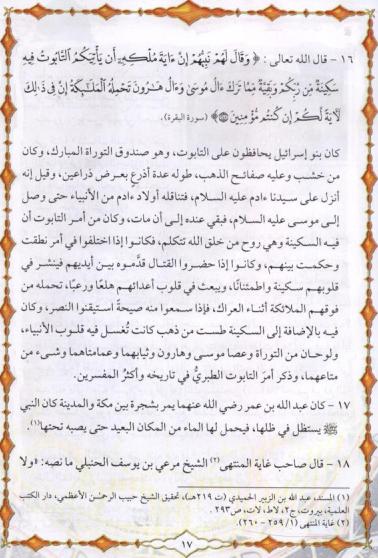 ١٦ - قال الله تعالى : ﴿ وَقَالَ لَهُمْ نَبِيُّهُمْ إِنَّ ءَايَةَ مُلْكِهِۦٓ أَن يَأْتِيَكُمُ ٱلتَّابُوتُ فِيهِ
سَكِينَةٌ مِّن رَّبِّكُمْ وَبَقِيَّةٌ مِّمَّا تَرَكَ ءَالُ مُوسَىٰ وَءَالُ هَٰرُونَ تَحْمِلُهُ ٱلْمَلَٰٓئِكَةُ إِنَّ فِي ذَٰلِكَ
لَأٓيَةً لَّكُمْ إِن كُنتُم مُّؤْمِنِينَ ﴾ (سورة البقرة).
كان بنو إسرائيل يحافظون على التابوت، وهو صندوق التوراة المبارك، وكان
من خشب وعليه صفائح الذهب، طوله عدة أذرعٍ بعرض ذراعين، وقيل إنه
أنزل على سيدنا ءادم عليه السلام، فتناقله أولاد ءادم من الأنبياء حتى وصل
إلى موسى عليه السلام، فبقي عنده إلى أن مات، وكان من أمر التابوت أن
فيه السكينة وهي روح من خلق الله تتكلم، فكانوا إذا اختلفوا في أمر نطقت
وحكمت بينهم، وكانوا إذا حضروا القتال قدَّموه بين أيديهم فينشر في
قلوبهم سكينة واطمئنانًا، ويبعث في قلوب أعدائهم هلعًا ورعبًا، تحمله من
فوقهم الملائكة أثناء العراك، فإذا سمعوا منه صيحةً استيقنوا النصر، وكان
فيه بالإضافة إلى السكينة طست من ذهب كانت تُغسل فيه قلوب الأنبياء،
ولوحان من التوراة وعصا موسى وهارون وثيابهما وعمامتاهما وشىء من
متاعهما، وذكر أمرَ التابوت الطبريُّ في تاريخه وأكثرُ المفسرين.
١٧ - كان عبد الله بن عمر رضي الله عنهما يمر بشجرة بين مكة والمدينة كان النبي
ﷺ يستظل في ظلها، فيحمل لها الماء من المكان البعيد حتى يصبه تحتها(١).
١٨ - قال صاحب غاية المنتهى(٢) الشيخ مرعي بن يوسف الحنبلي ما نصه: «ولا
(١) المسند، عبد الله بن الزبير الحميدي (ت ٢١٩هـ)، تحقيق الشيخ حبيب الرحمٰن الأعظمي، دار الكتب
العلمية، بيروت، ج٢، لاط، لات، ص٢٩٣.
(٢) غاية المنتهى (١/ ٢٥٩ - ٢٦٠).
١٧